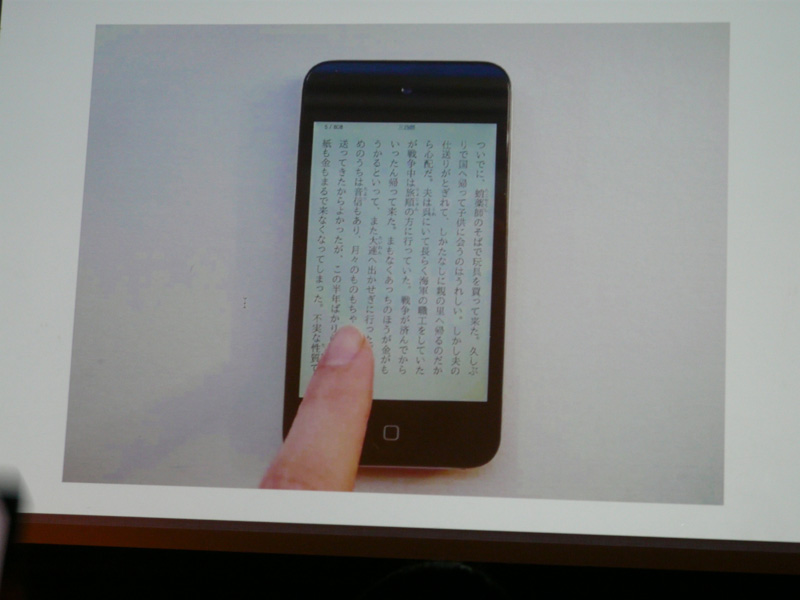 三四郎
ついでに、蛸薬師のそばで玩具を買って来た。久しぶ
りで国へ帰って子供に会うのはうれしい。しかし夫の
仕送りがとぎれて、しかたなしに親の里へ帰るのだか
ら心配だ。夫は呉にいて長らく海軍の職工をしていた
が戦争中は旅順の方に行っていた。戦争が済んでから
いったん帰って来た。まもなくあっちのほうが金がも
うかるといって、また大連へ出かせぎに行った
めのうちは音信もあり、月々のものもちゃ
送ってきたからよかったが、この半年ばかり
紙も金もまるで来なくなってしまった。不実な性質で